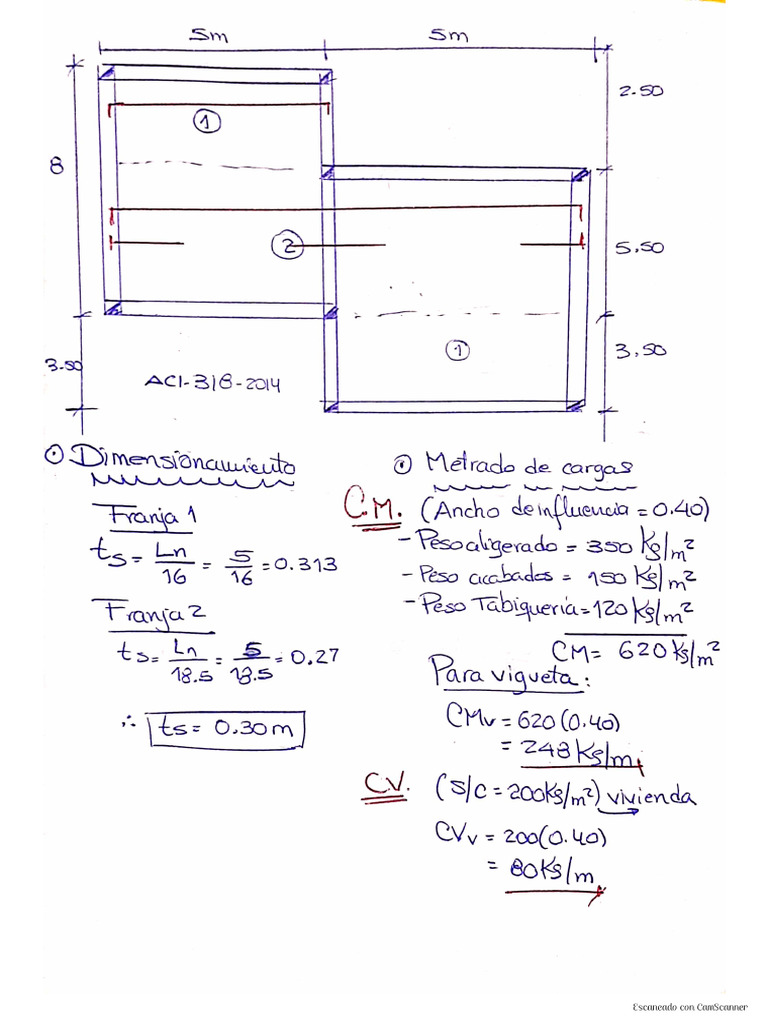 5m 5m
2.50
①
8
②
5.50
①
3.50
3.50
ACI-318-2014
⊙ Dimensionamiento
Franja 1
ts = Ln/16 = 5/16 = 0.313
Franja 2
ts = Ln/18.5 = 5/18.5 = 0.27
∴ ts = 0.30m
⊙ Metrado de cargas
C.M. (Ancho de influencia = 0.40)
- Peso aligerado = 350 Kg/m²
- Peso acabados = 150 Kg/m²
- Peso Tabiquería = 120 Kg/m²
CM = 620 Kg/m²
Para vigueta:
CMv = 620(0.40)
= 248 Kg/m
C.V. (S/C = 200Kg/m²) vivienda
CVv = 200(0.40)
= 80Kg/m
Escaneado con CamScanner